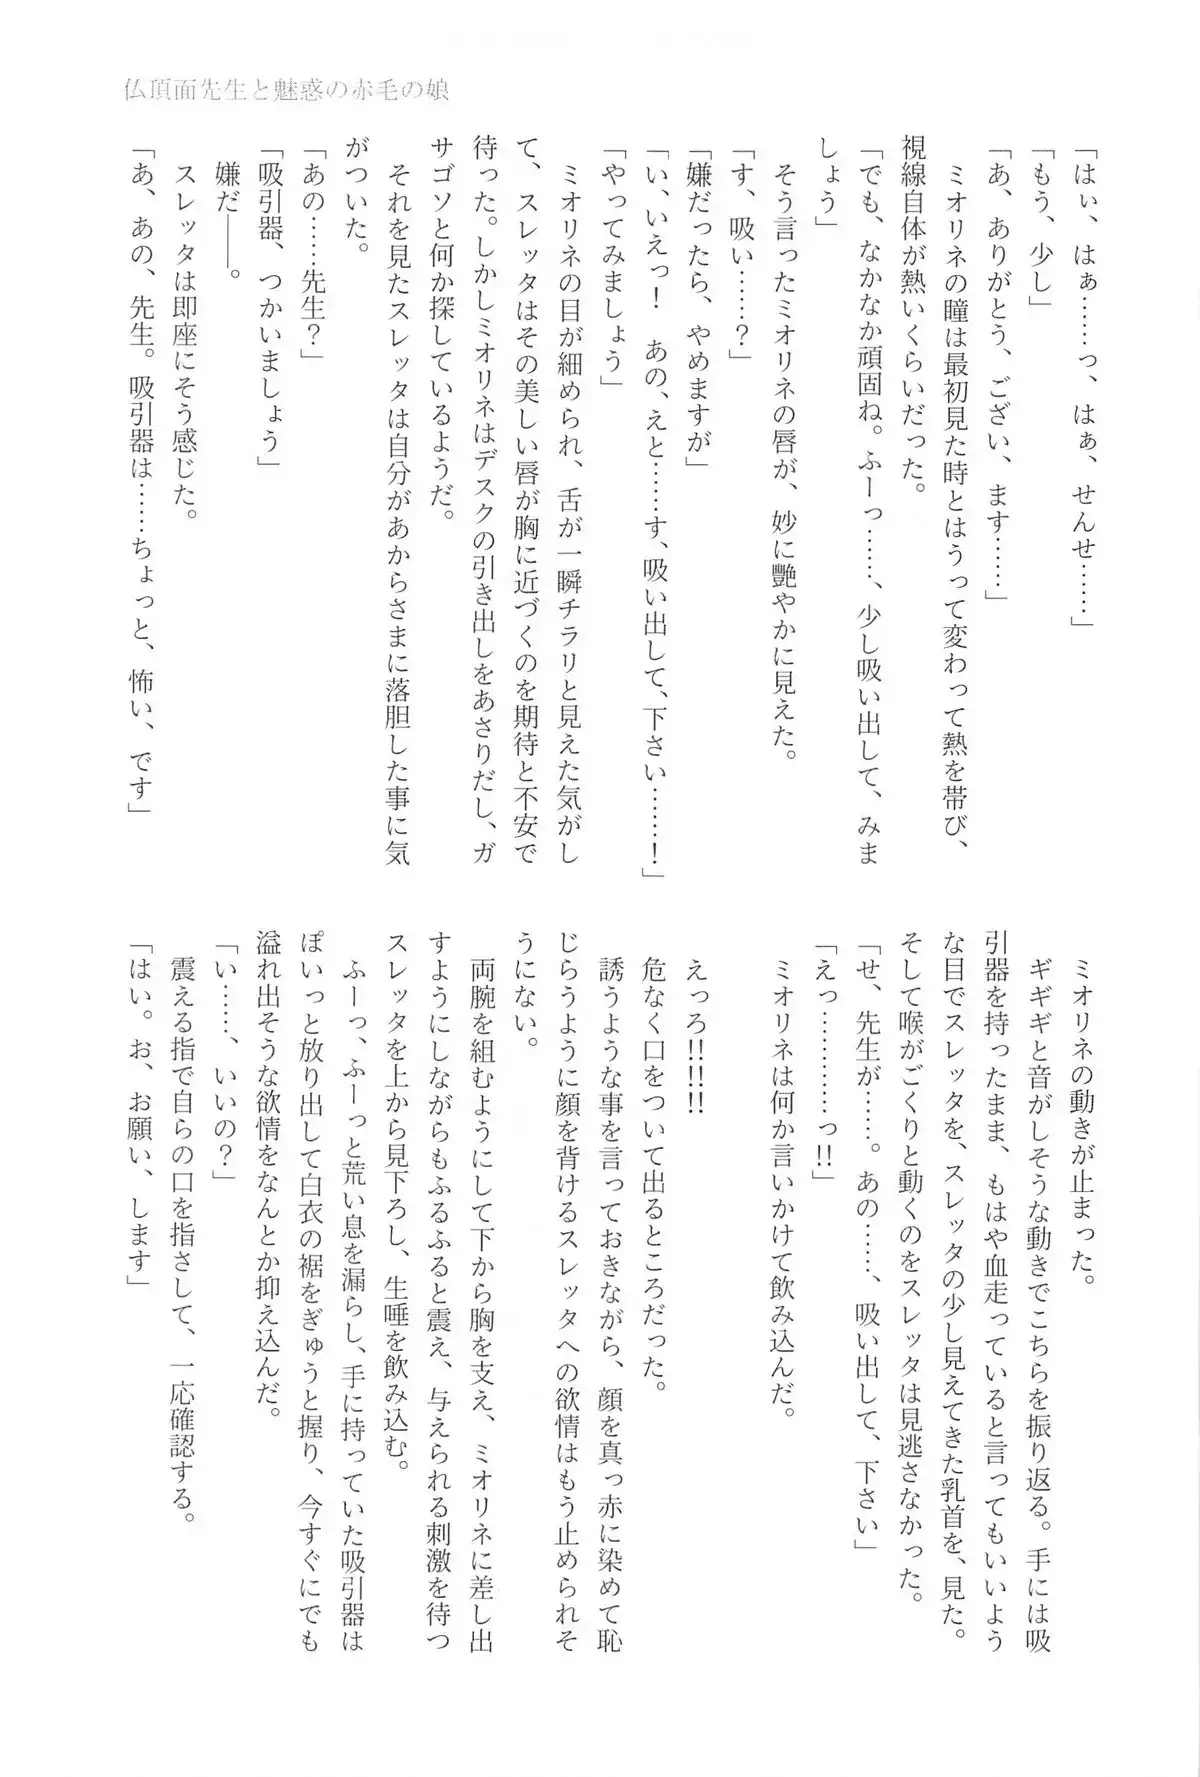 仏頂面先生と魅惑の赤毛の娘
「はい、はぁ……っ、はぁ、せんせ……」
「もう、少し」
「あ、ありがとう、ござい、ます……」
ミオリネの瞳は最初見た時とはうって変わって熱を帯び、
視線自体が熱いくらいだった。
「でも、なかなか頑固ね。ふーっ……、少し吸い出して、みま
しょう」
そう言ったミオリネの唇が、妙に艶やかに見えた。
「す、吸い……?」
「嫌だったら、やめますが」
「い、いえっ! あの、えと……す、吸い出して、下さい……!」
「やってみましょう」
ミオリネの目が細められ、舌が一瞬チラリと見えた気がし
て、スレッタはその美しい唇が胸に近づくのを期待と不安で
待った。しかしミオリネはデスクの引き出しをあさりだし、ガ
サゴソと何か探しているようだ。
それを見たスレッタは自分があからさまに落胆した事に気
がついた。
「あの……先生?」
「吸引器、つかいましょう」
嫌だ――。
スレッタは即座にそう感じた。
「あ、あの、先生。吸引器は……ちょっと、怖い、です」
ミオリネの動きが止まった。
ギギギと音がしそうな動きでこちらを振り返る。手には吸
引器を持ったまま、もはや血走っていると言ってもいいよう
な目でスレッタを、スレッタの少し見えてきた乳首を、見た。
そして喉がごくりと動くのをスレッタは見逃さなかった。
「せ、先生が……。あの……、吸い出して、下さい」
「えっ…………っ!!」
ミオリネは何か言いかけて飲み込んだ。
えっろ!!!!
危なく口をついて出るところだった。
誘うような事を言っておきながら、顔を真っ赤に染めて恥
じらうように顔を背けるスレッタへの欲情はもう止められそ
うにない。
両腕を組むようにして下から胸を支え、ミオリネに差し出
すようにしながらもふるふると震え、与えられる刺激を待つ
スレッタを上から見下ろし、生唾を飲み込む。
ふーっ、ふーっと荒い息を漏らし、手に持っていた吸引器は
ぽいっと放り出して白衣の裾をぎゅうと握り、今すぐにでも
溢れ出そうな欲情をなんとか抑え込んだ。
「い……、いいの?」
震える指で自らの口を指さして、一応確認する。
「はい。お、お願い、します」